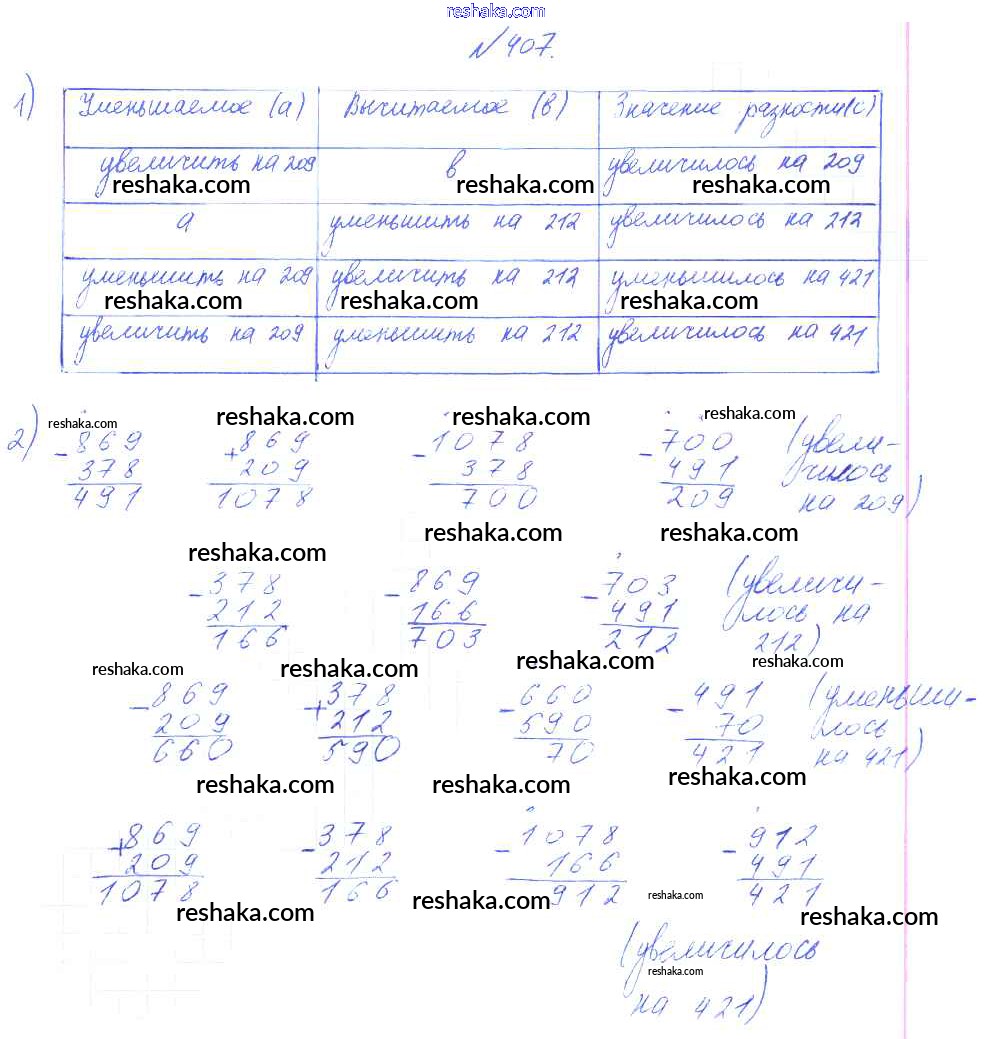 reshaka.com
№ 407.
1) Уменьшаемое (а) Вычитаемое (в) Значение разности(с)
увеличить на 209 в увеличилось на 209
reshaka.com reshaka.com reshaka.com
а уменьшить на 212 увеличилось на 212
уменьшить на 209 увеличить на 212 уменьшилось на 421
reshaka.com reshaka.com reshaka.com
увеличить на 209 уменьшить на 212 увеличилось на 421
reshaka.com reshaka.com reshaka.com reshaka.com
2) - 869 + 869 - 1078 - 700 (увели-
378 209 378 491 чилось
491 1078 700 209 на 209)
reshaka.com reshaka.com reshaka.com
- 378 - 869 - 703 (увеличи-
212 166 491 лось на
166 703 212 212)
reshaka.com reshaka.com reshaka.com reshaka.com
- 869 + 378 - 660 - 491 (уменьши-
209 212 590 70 лось
660 590 70 421 на 421)
reshaka.com reshaka.com reshaka.com
+ 869 - 378 - 1078 - 912
209 212 166 491
1078 166 912 421
reshaka.com reshaka.com reshaka.com reshaka.com
(увеличилось
reshaka.com
на 421)